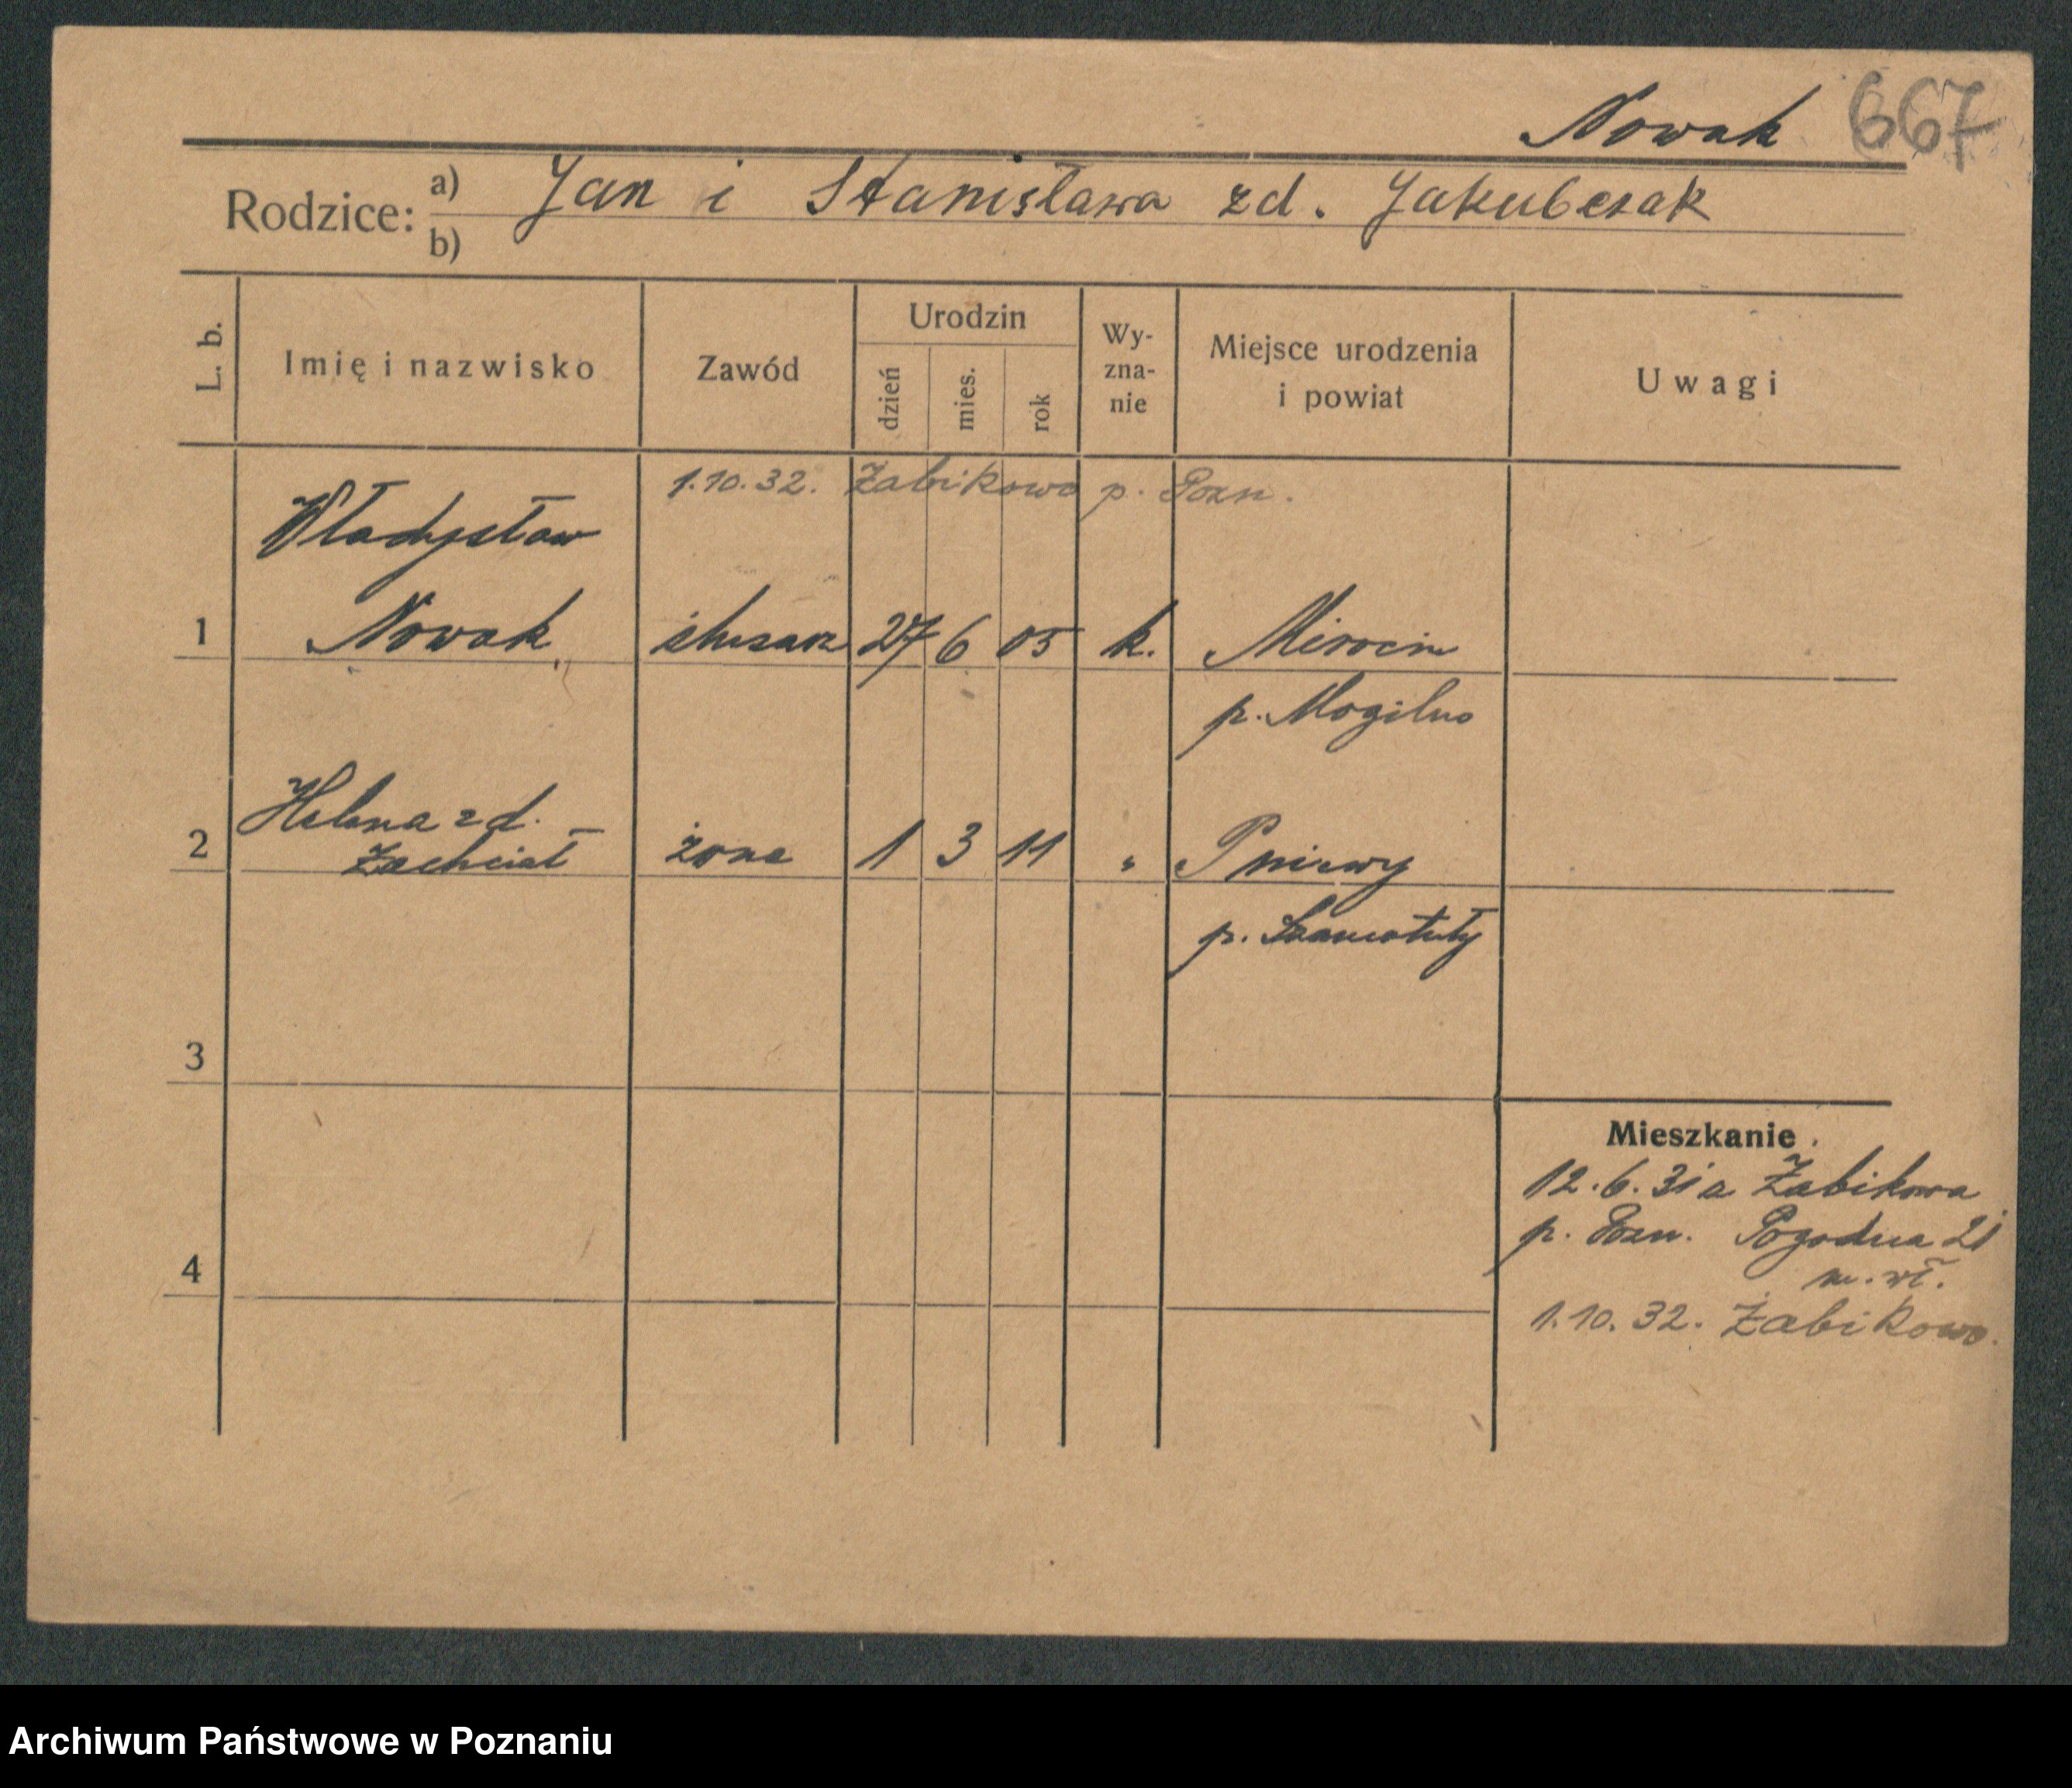 Nowak 667
Rodzice: a) Jan i Stanisława zd. Jakubczak
b)
L. b. Imię i nazwisko Zawód Urodzin dzień mies. rok Wy-zna-nie Miejsce urodzenia i powiat Uwagi
1.10.32. Żabikowo p. Pozn.
Władysław
1 Nowak ślusarz 27 6 05 k. Mirocin
p. Mogilno
Helena z d.
2 Zachciał żona 1 3 11 " Pniewy
p. Szamotuły
3
Mieszkanie
12.6.31 a Żabikowa
p. Pozn. Pogodna 21
m. wł.
4
1.10.32. Żabikowo.
Archiwum Państwowe w Poznaniu